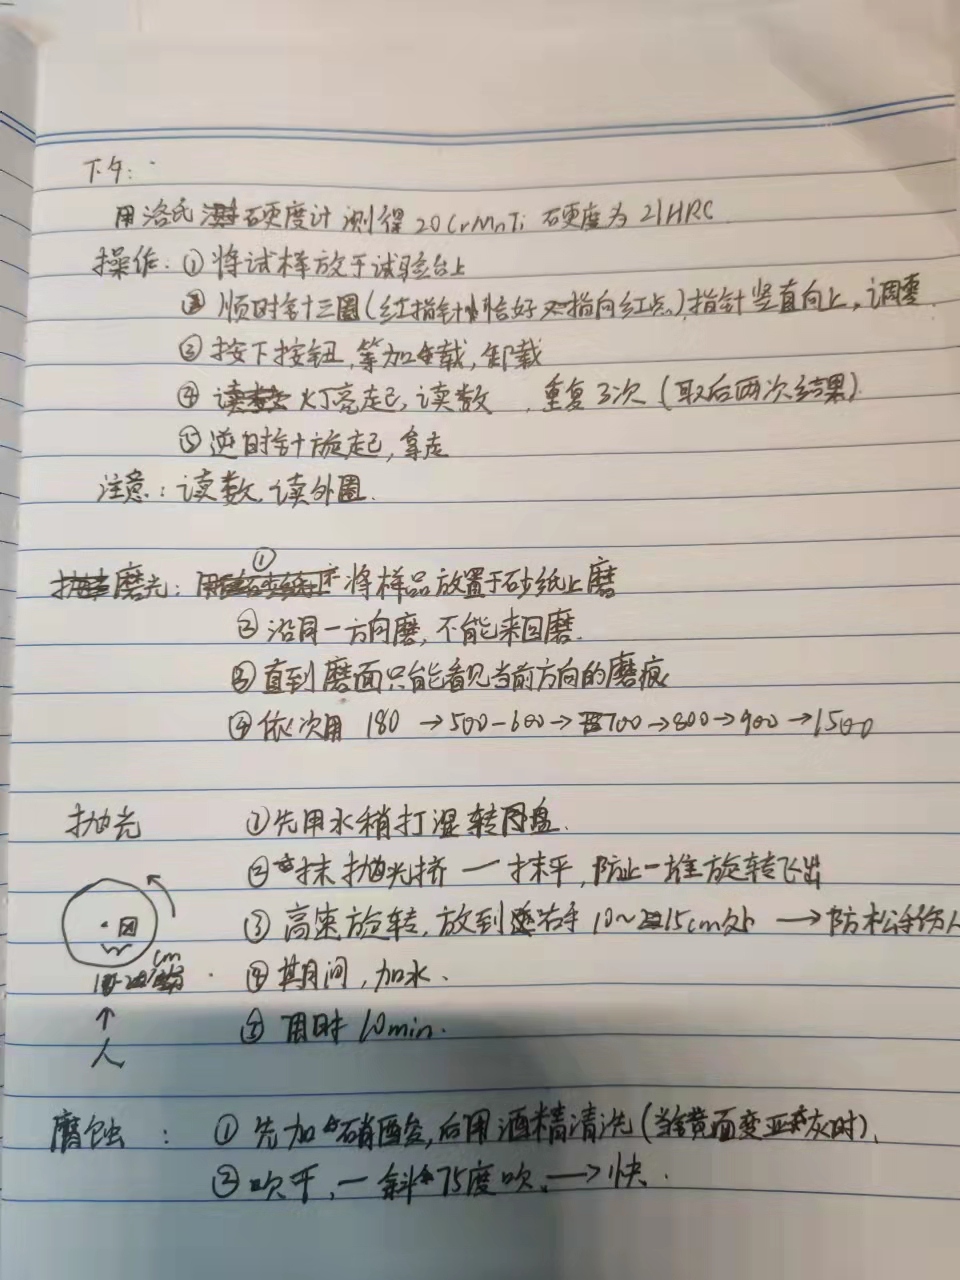 下午:
用洛氏硬度计测得20CrMnTi 硬度为21HRC
操作: ①将试样放于试验台上
② 顺时针十三圈(红指针恰好指向红点)指针竖直向上,调零.
③ 按下按钮,等加载,卸载
④ 灯亮起,读数,重复3次(取后两次结果)
⑤ 逆时针旋起,拿走
注意:读数,读外圈.
磨光: ① 将样品放置于砂纸上磨
② 沿同一方向磨,不能来回磨.
③ 直到磨面只能看见当前方向的磨痕
④ 依次用 180 →500-600→700→800→900→1500
抛光 ①先用水稍打湿转盘.
②抹抛光挤一抹平,防止一堆旋转飞出
③ 高速旋转,放到右手10~15cm处 →防松手伤人
cm
④ 期间,加水.
⑤ 用时 10min.
↑
人
磨蚀: ① 先加硝酸,后用酒精清洗(当镜面变灰时).
② 吹干,一斜75度吹,→快.